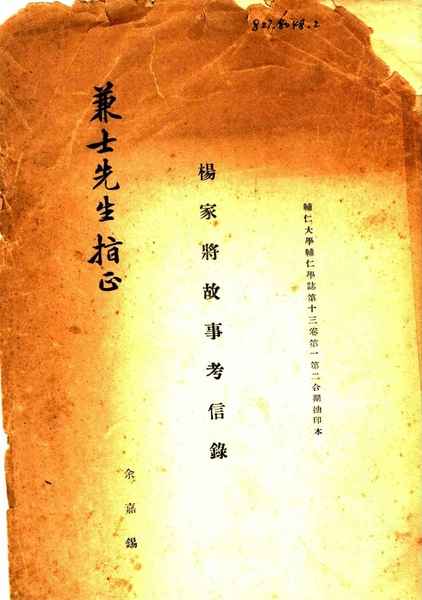 827.8048.2
輔仁大學輔仁學誌第十三卷第一第二合期抽印本
楊家將故事考信錄
余嘉錫
兼士先生指正